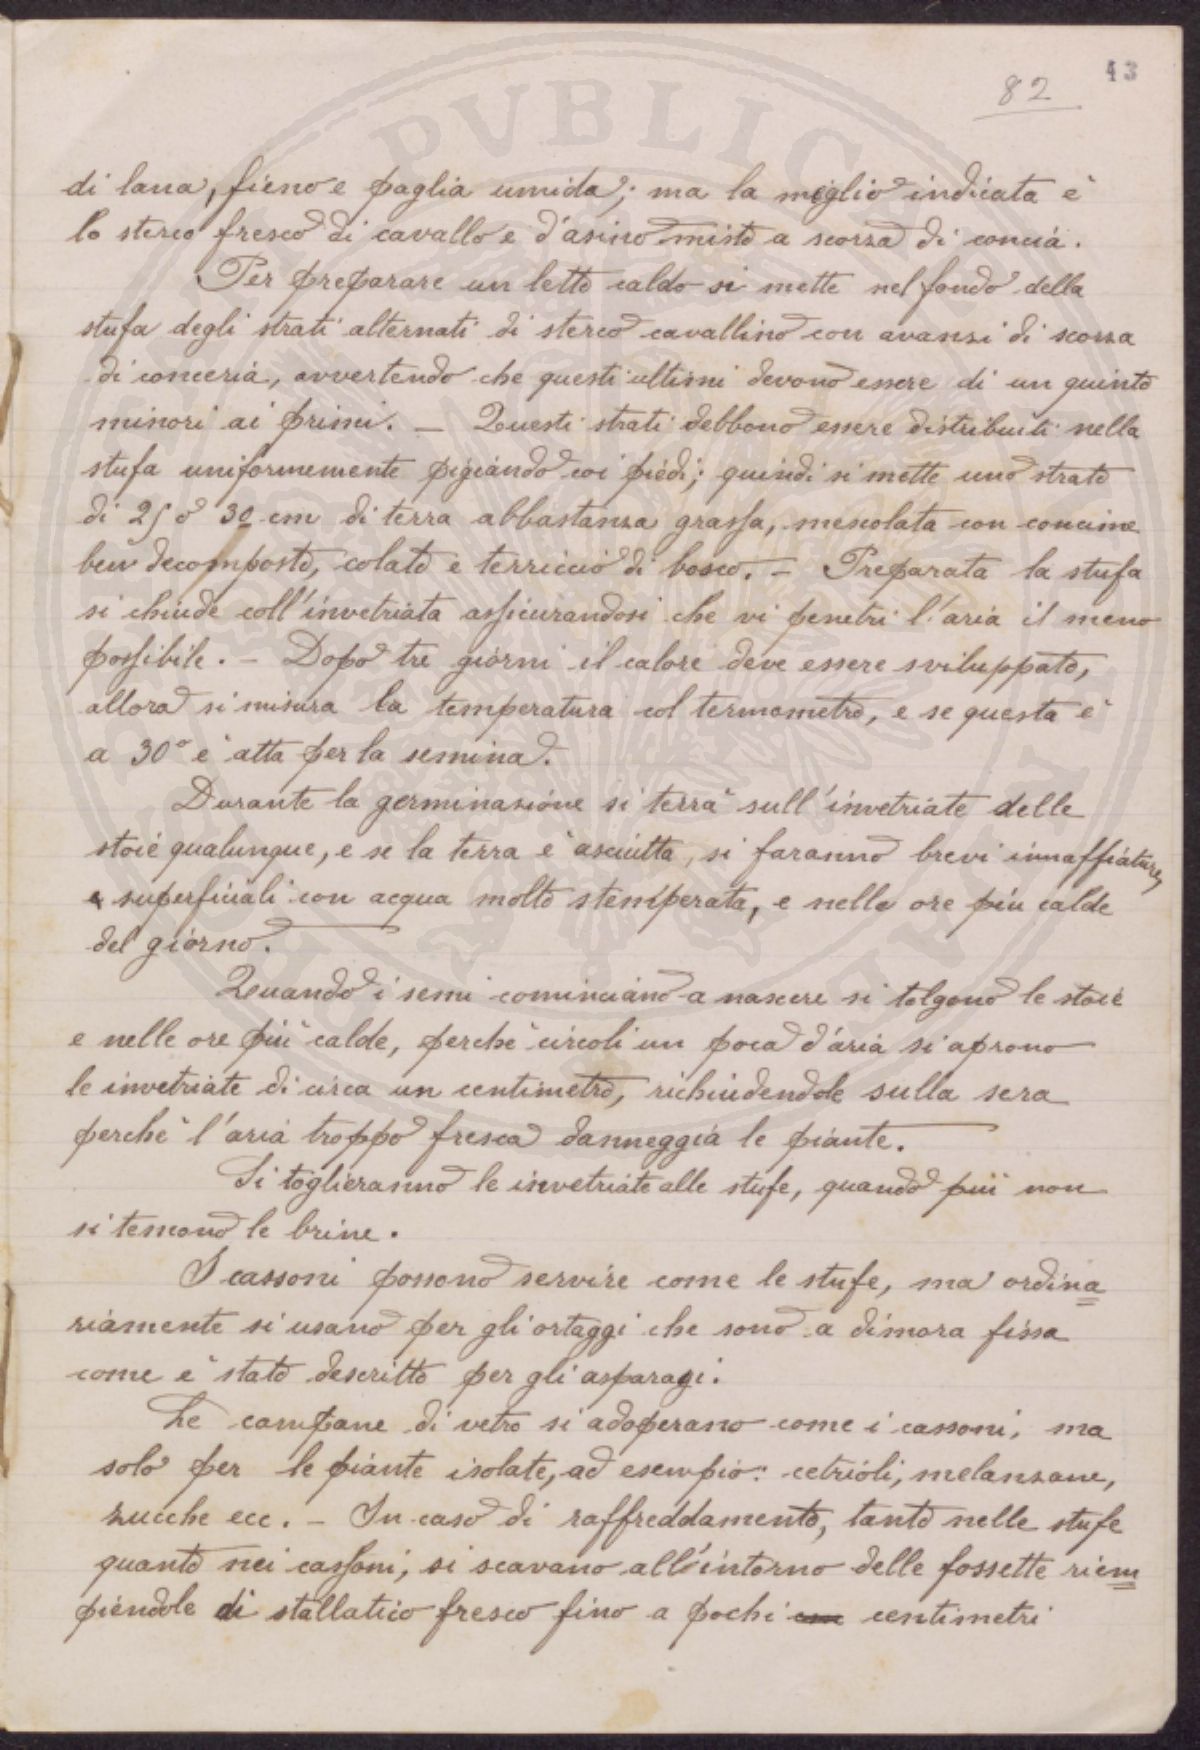 43
82
di lana, fieno e paglia umida; ma la meglio indicata è
lo sterco fresco di cavallo e d'asino misto a scorza di concia.
Per preparare un letto caldo si mette nel fondo della
stufa degli strati alternati di sterco cavallino con avanzi di scorza
di conceria, avvertendo che questi ultimi devono essere di un quinto
minori ai primi. — Questi strati debbono essere distribuiti nella
stufa uniformemente pigiando coi piedi; quindi si mette uno strato
di 25 o 30 cm di terra abbastanza grassa, mescolata con concime
ben decomposto, colato e terriccio di bosco. — Preparata la stufa
si chiude coll'invetriata assicurandosi che vi penetri l'aria il meno
possibile. — Dopo tre giorni il calore deve essere sviluppato,
allora si misura la temperatura col termometro, e se questa è
a 30° è atta per la semina.
Durante la germinazione si terrà sull'invetriate delle
stoie qualunque, e se la terra è asciutta, si faranno brevi innaffiature,
e superficiali con acqua molto stemperata, e nelle ore più calde
del giorno.
Quando i semi cominciano a nascere si tolgono le stoie
e nelle ore più calde, perchè circoli un poca d'aria si aprono
le invetriate di circa un centimetro, richiudendole sulla sera
perchè l'aria troppo fresca danneggia le piante.
Si toglieranno le invetriate alle stufe, quando più non
si temono le brine.
I cassoni possono servire come le stufe, ma ordina=
riamente si usano per gli ortaggi che sono a dimora fissa
come è stato descritto per gli asparagi.
Le campane di vetro si adoperano come i cassoni, ma
solo per le piante isolate, ad esempio: cetrioli, melanzane,
zucche ecc. — In caso di raffreddamento, tanto nelle stufe
quanto nei cassoni, si scavano all'intorno delle fossette riem=
piendole di stallatico fresco fino a pochi cm centimetri